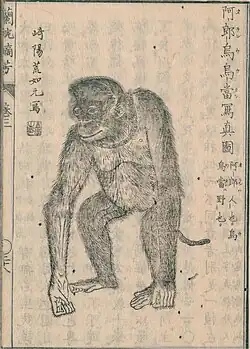 阿郎烏烏當寫真圖
阿郎人也烏
烏當野也
崎陽荒如元寫
蘭畹摘芳
卷三